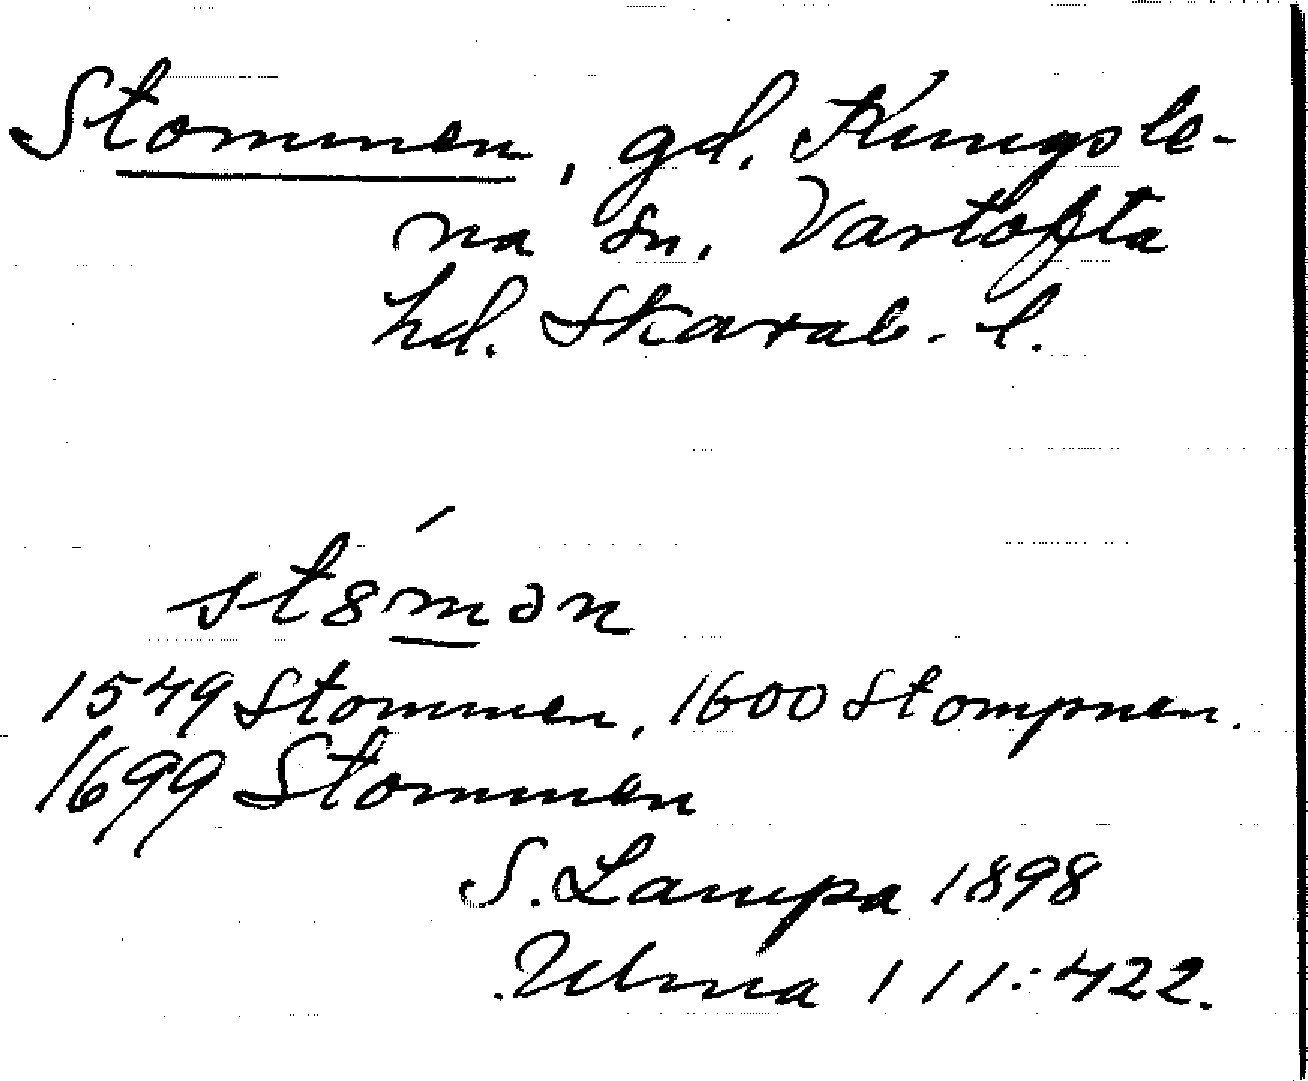 Stommen, gd. Kungsle-
na sn. Vartofta
hd. Skarab. l.
st8mən
1549 Stommen, 1600 Stompnen.
1699 Stommen
S. Lampa 1898
Ulma 111:422.